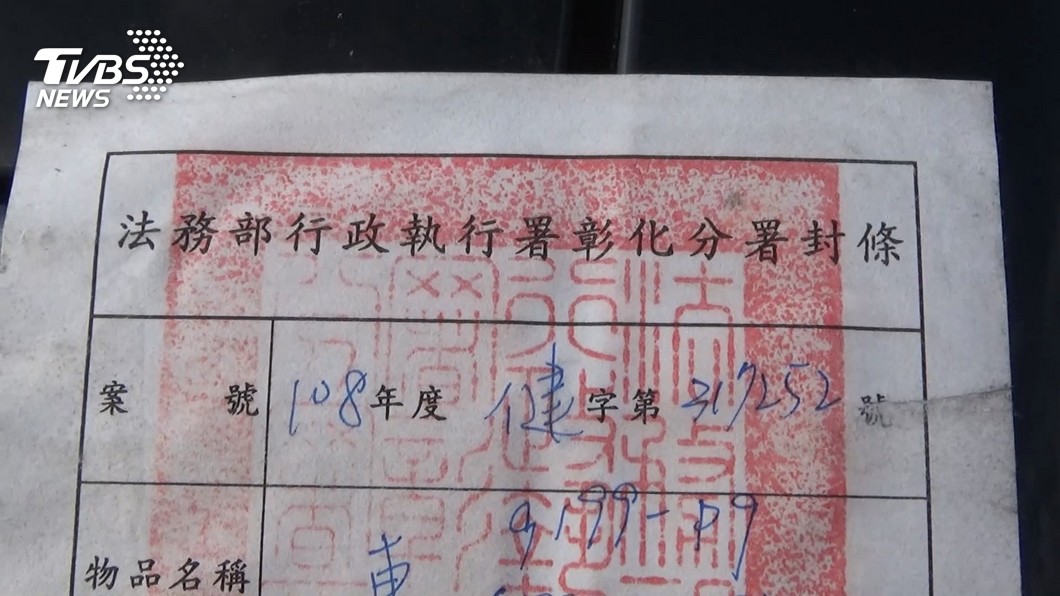 TVBS
NEWS
法務部行政執行署彰化分署封條
案 號 108年度 健 字第 317252 號
9199-P9
物品名稱 車